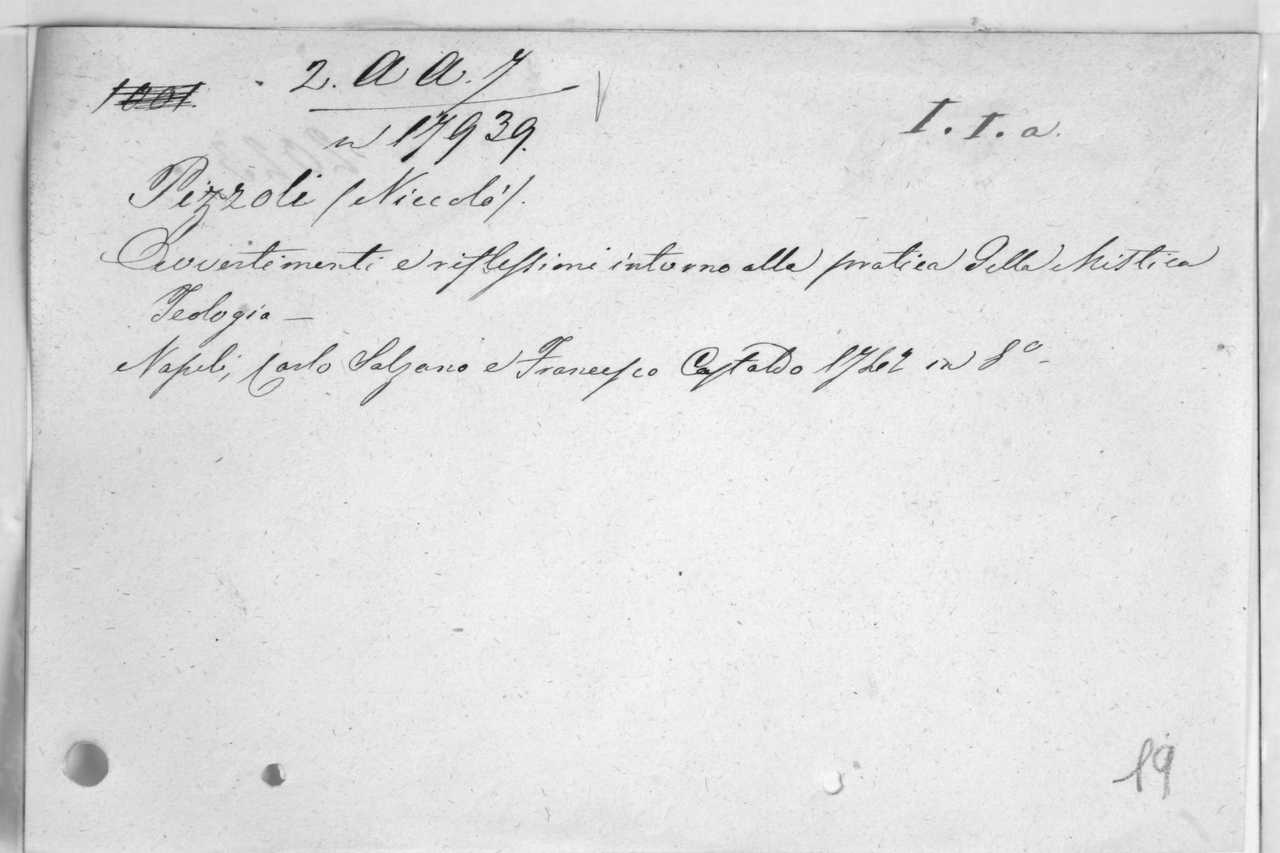 1001. 2. a a. 7
n 17939.
I. I. a.
Pizzoli (Niccolò).
Avvertimenti e riflessioni intorno alla pratica della Mistica
Teologia —
Napoli, Carlo Salzano e Francesco Castaldo 1762 in 8º -
19